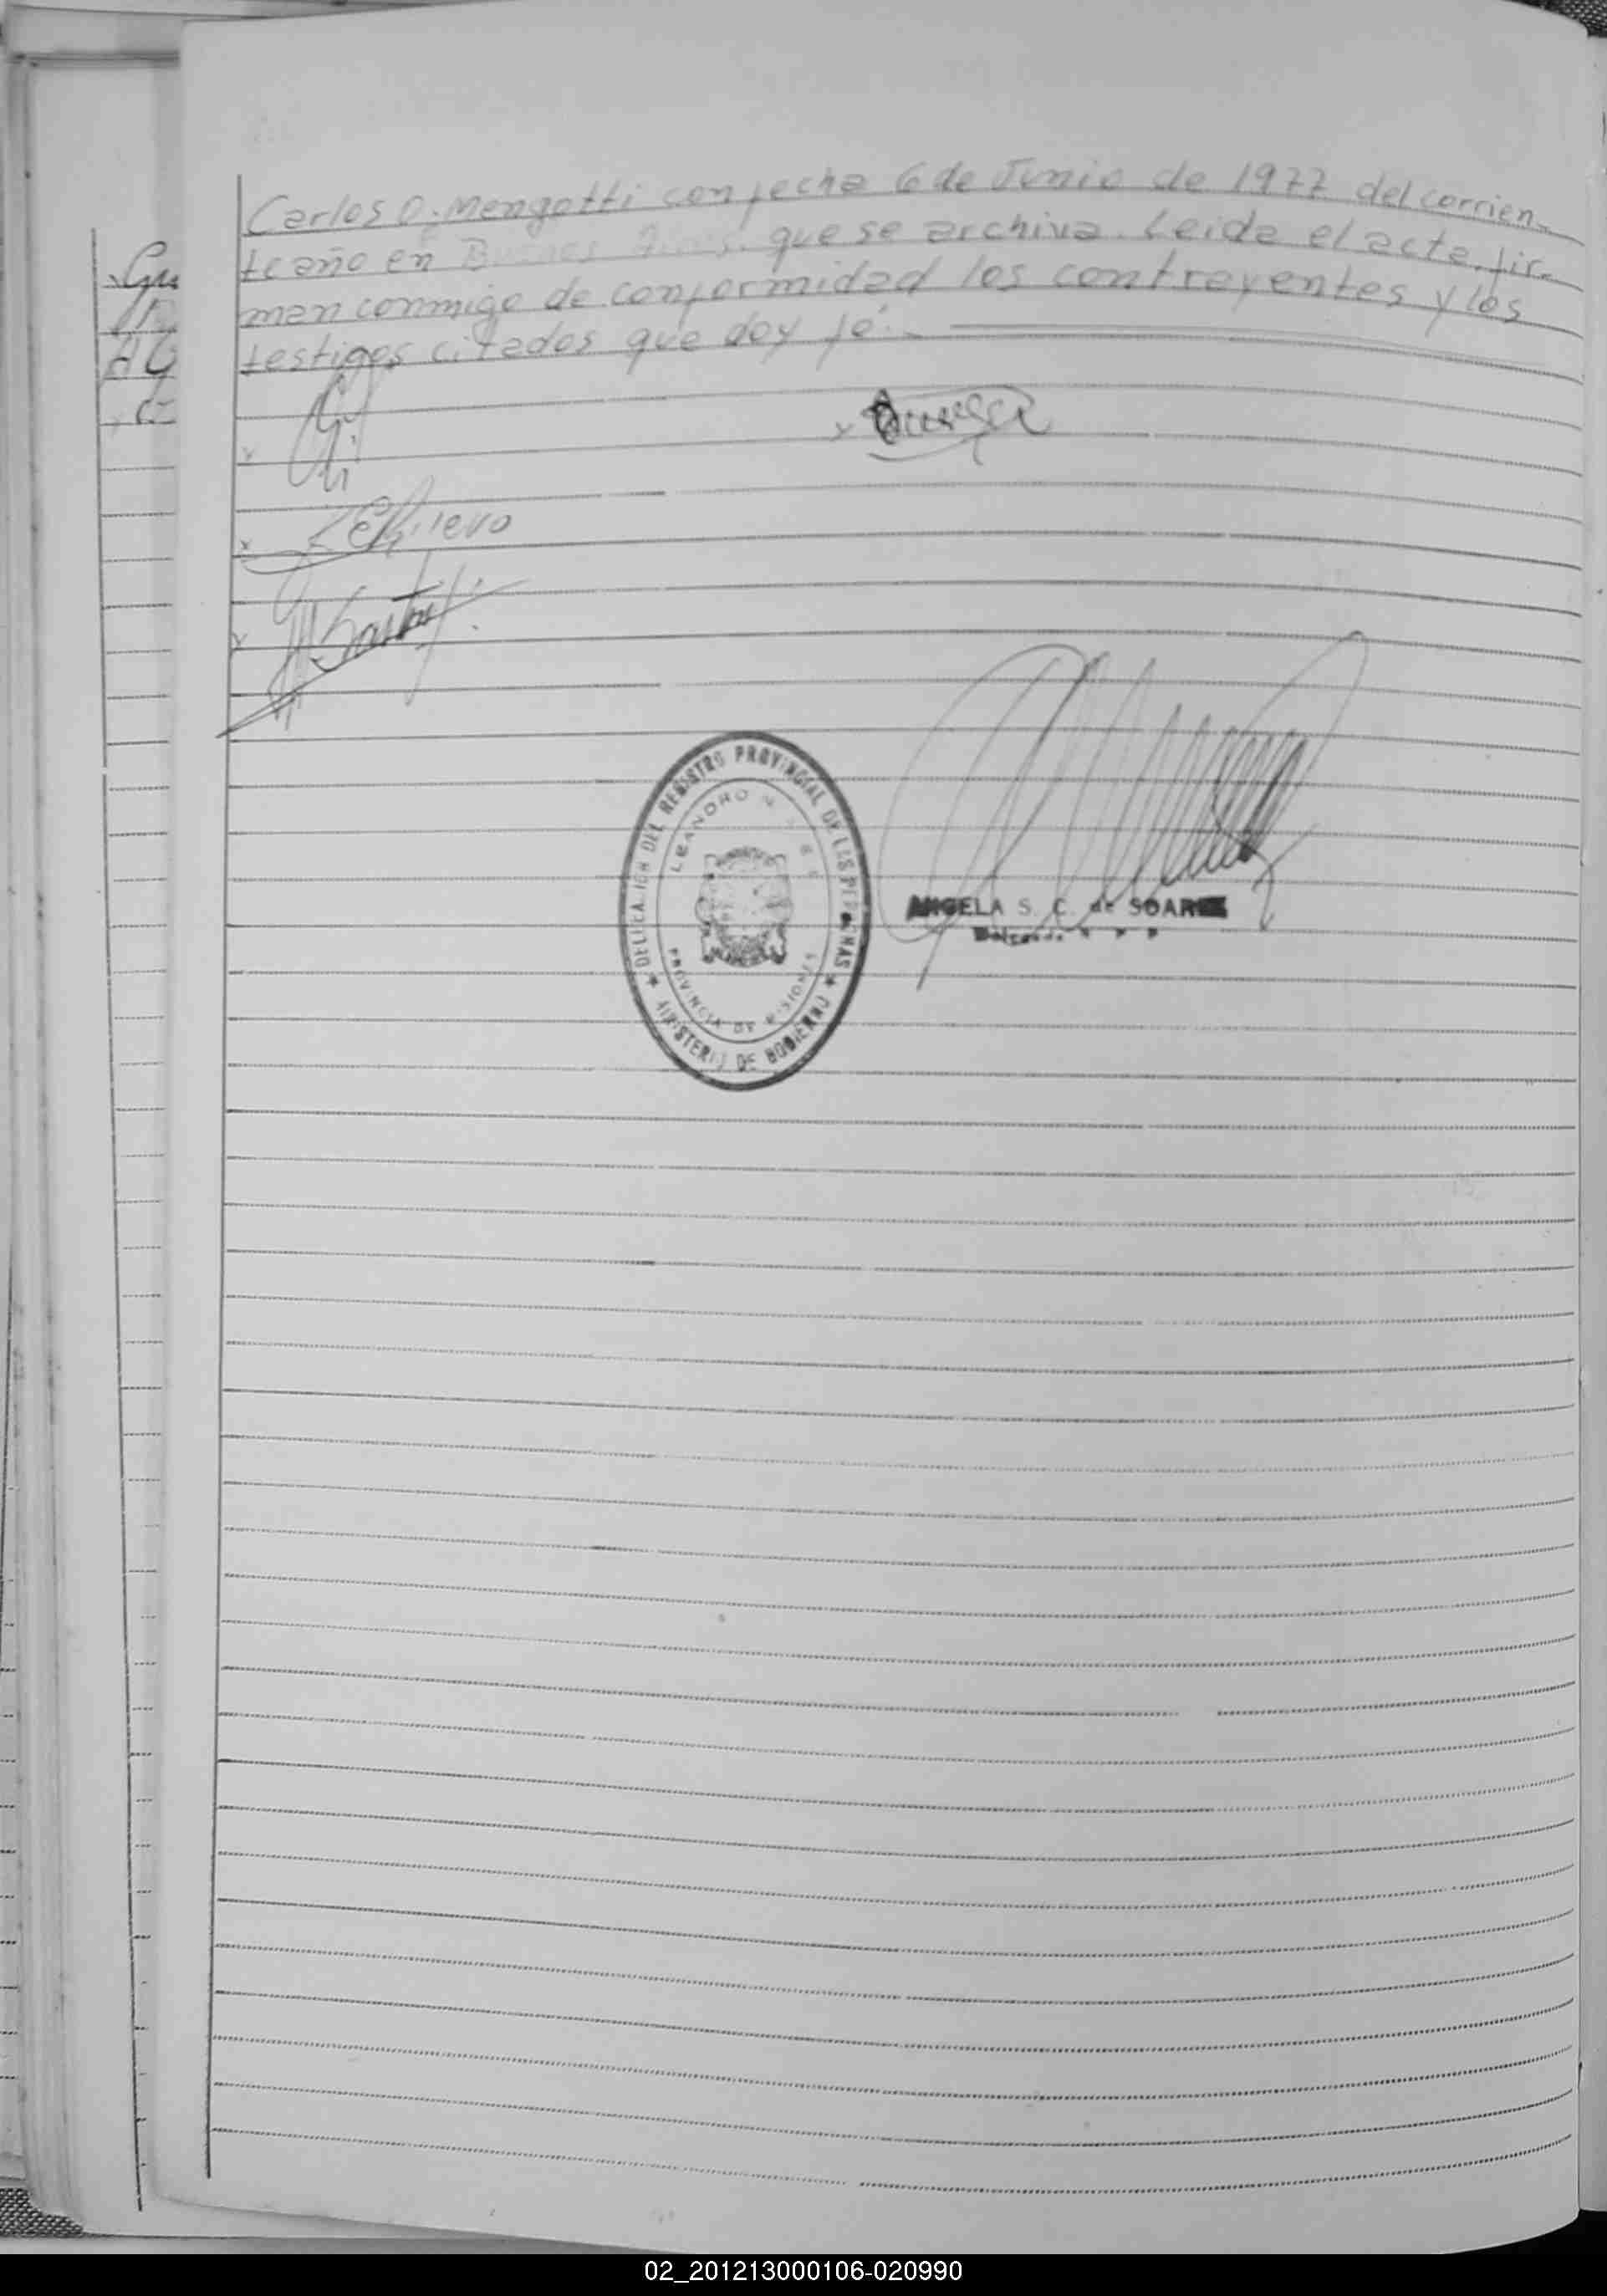 Carlos O. Mengotti con fecha 6 de Junio de 1977 del corrien-
te año en Buenos Aires. que se archiva. Leida el acta, fir-
man conmigo de conformidad los contrayentes y los
testigos citados que doy fé.-
x
x
x
x
DELEGACION DEL REGISTRO PROVINCIAL DE LAS PERSONAS
LEANDRO N
PROVINCIA DE MISIONES
MINISTERIO DE GOBIERNO
ANGELA S. C. de SOAREZ
02_201213000106-020990